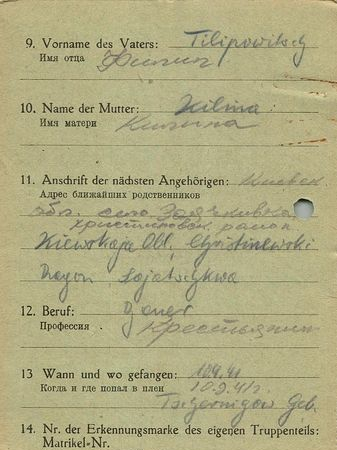 9. Vorname des Vaters: Filipowitsch
Имя отца Филип
10. Name der Mutter: Kilina
Имя матери Килина
11. Anschrift der nächsten Angehörigen: Киевск
Адрес ближайших родственников
обл. село Заячкивка
христиновск. район
Kiewskaja Obl. Christinewski
Rayon Sajatschkwa
12. Beruf: Bauer
Профессия Крестьянин
13 Wann und wo gefangen: 10.9.41
Когда и где попал в плен 10.9.41г.
Tschernigow Geb.
14. Nr. der Erkennungsmarke des eigenen Truppenteils:
Matrikel-Nr.